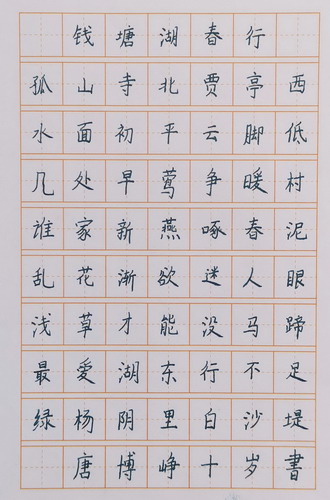 钱塘湖春行
孤山寺北贾亭西
水面初平云脚低
几处早莺争暖村
谁家新燕啄春泥
乱花渐欲迷人眼
浅草才能没马蹄
最爱湖东行不足
绿杨阴里白沙堤
唐博峥十岁書